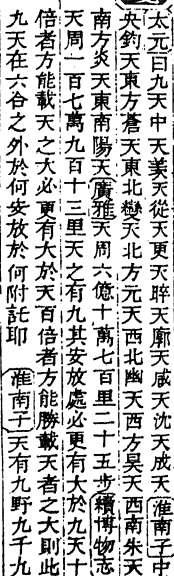 太元曰九天中天羨天從天更天睟天廓天咸天沈天成天淮南子中
央鈞天東方蒼天東北變天北方元天西北幽天西方昊天西南朱天
南方炎天東南陽天廣雅天周六億十萬七百里二十五步續博物志
天周一百七萬九百十三里天之有九其安放處必更有大於九天十
倍者方能載天之大必更有大於天百倍者方能勝載天者之大則此
九天在六合之外於何安放於何附託耶 淮南子天有九野九千九